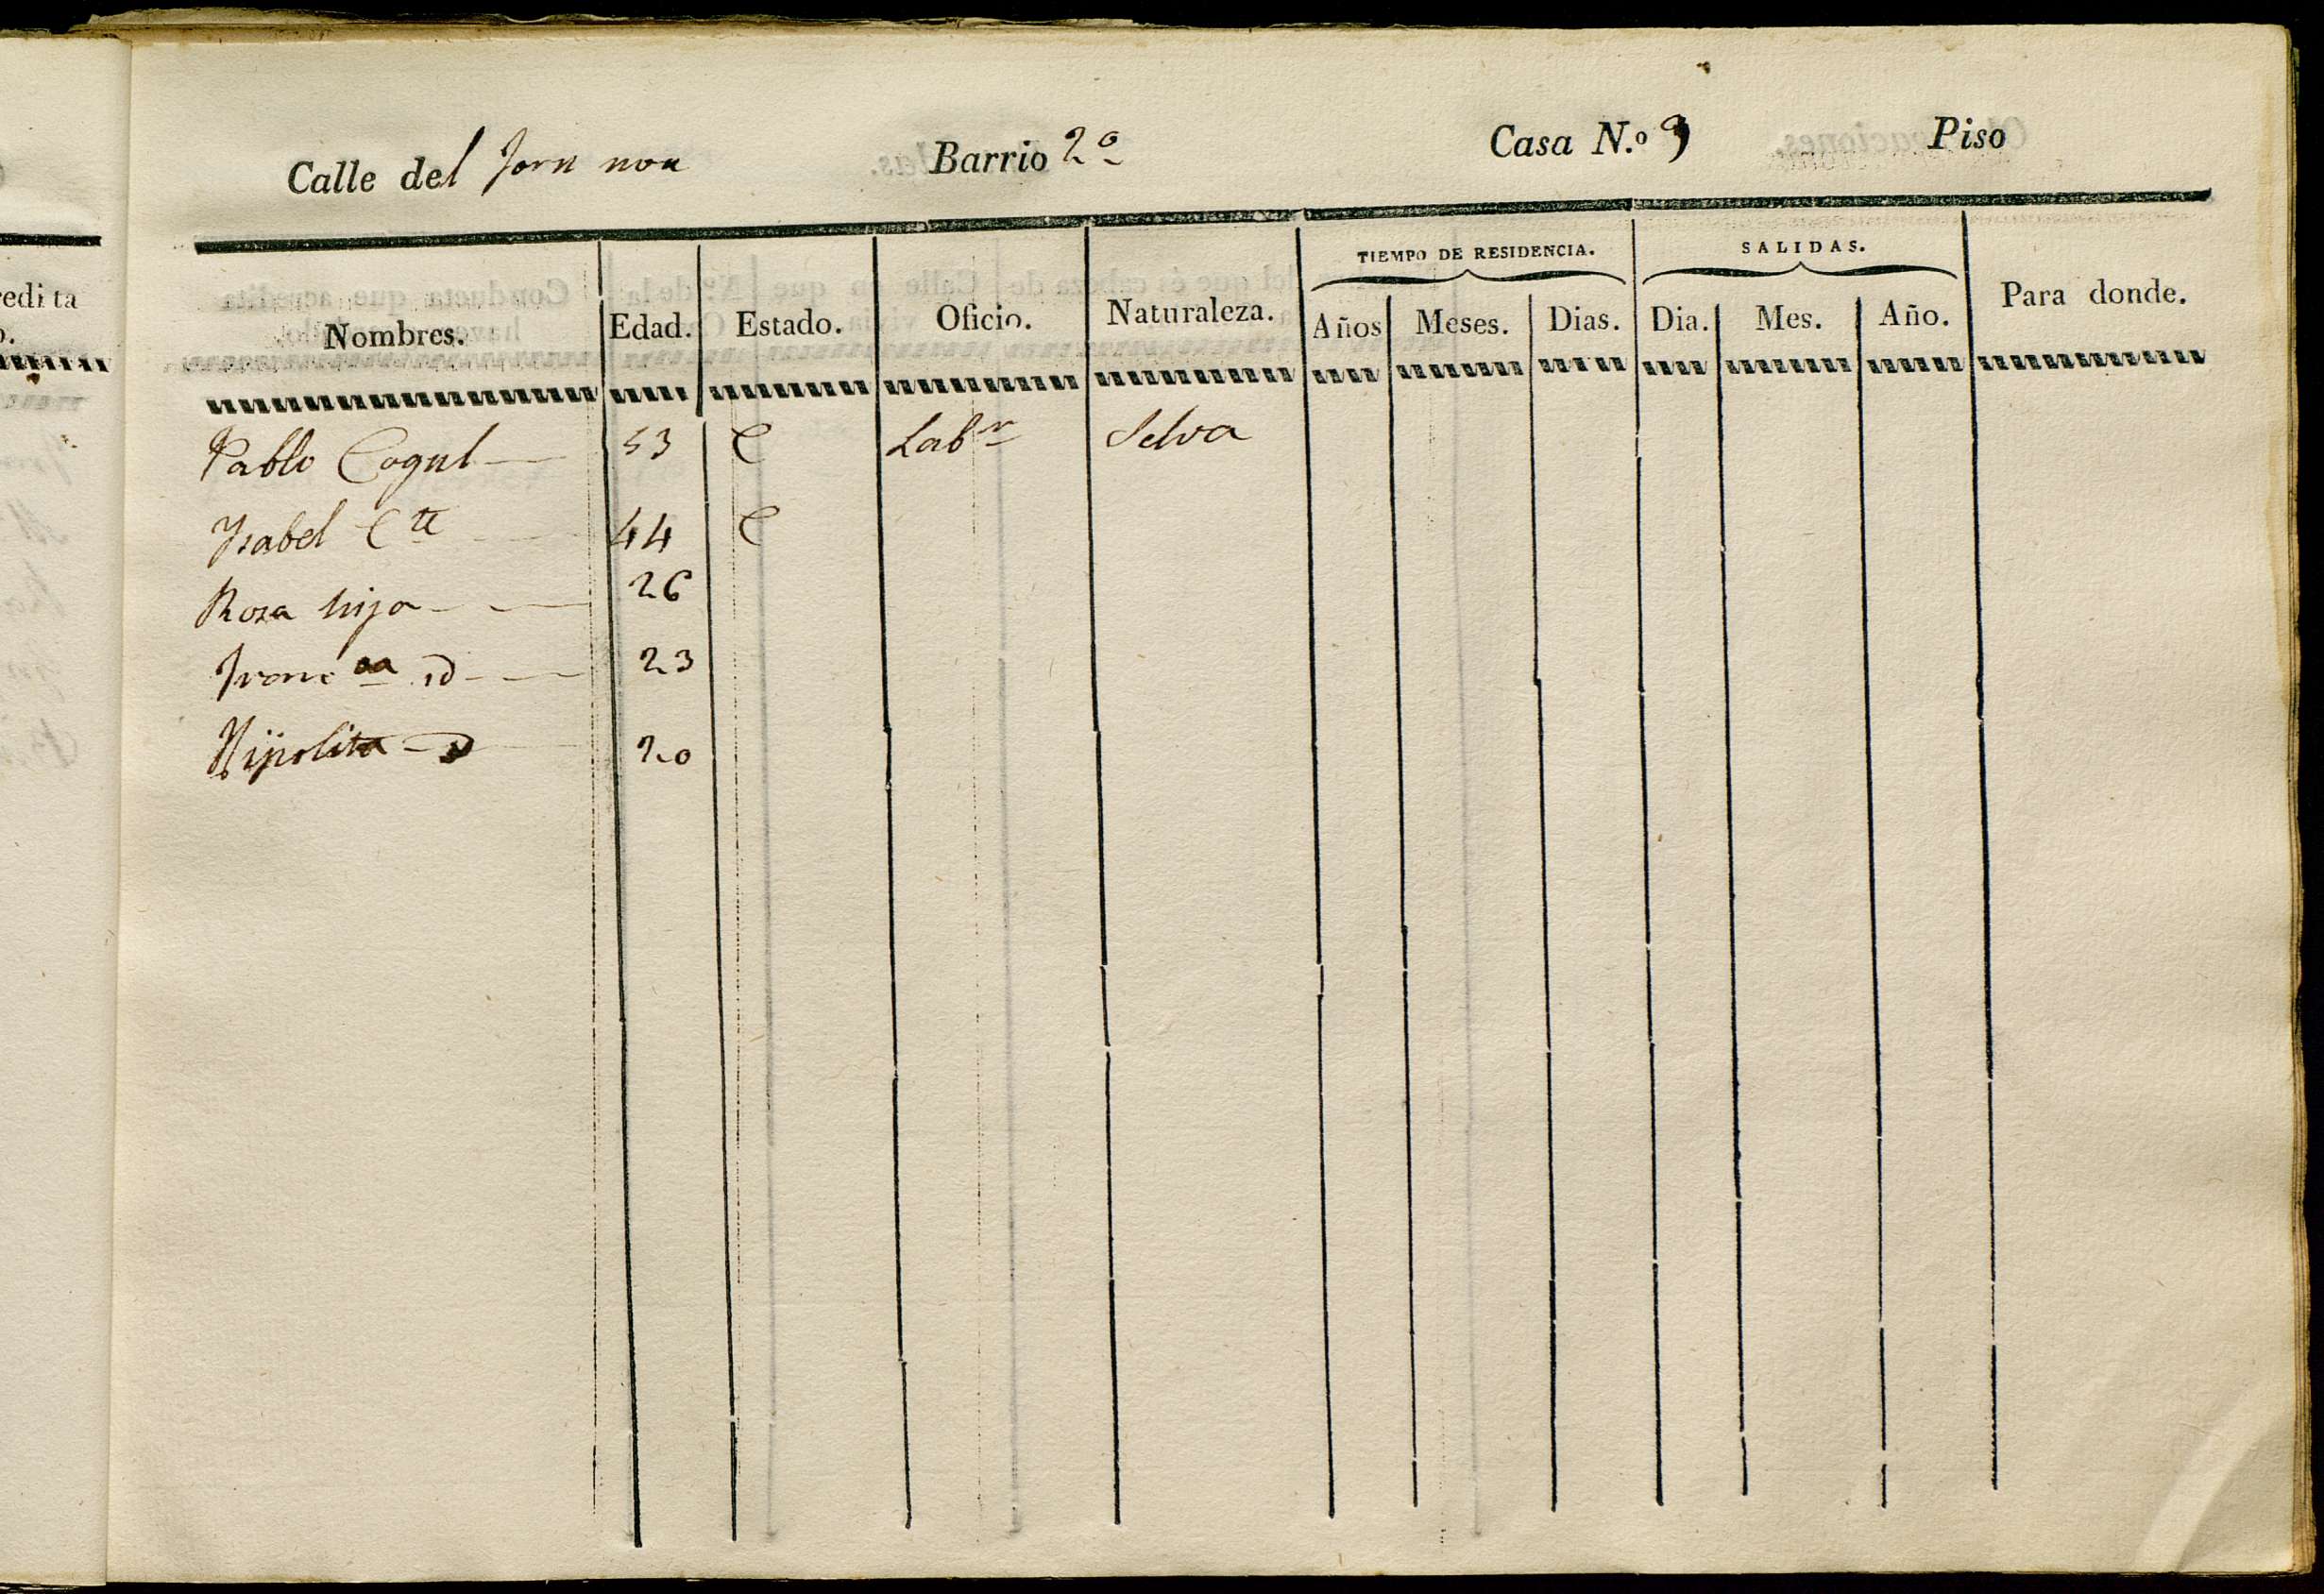 Calle del forn nou Barrio 2º Casa N.º 9 Piso
TIEMPO DE RESIDENCIA. SALIDAS.
Nombres. Edad. Estado. Oficio. Naturaleza. Años Meses. Dias. Dia. Mes. Año. Para donde.
Pablo Cogul 53 C Labr Selva
Ysabel Ctte 44 C
Rosa hija 26
Francca id 23
Hipolita id 20
redita
o.